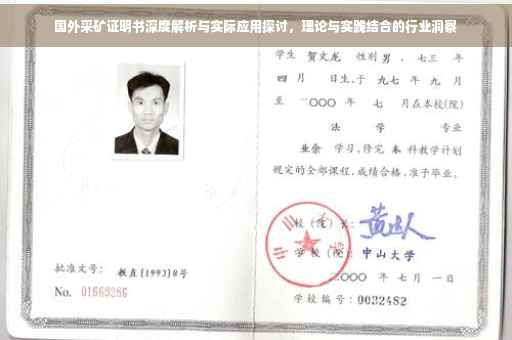 国外采矿证明书深度解析与实际应用探讨，理论与实践结合的行业洞察
学生 贺文龙 性别 男 . 七三 年
四 月 日生,于 九七 年 九 月
至 二〇〇〇 年 七 月在本校(院)
法 学 专业
业余 学习,修完 本 科教学计划
规定的全部课程,成绩合格,准予毕业。
校 (院) 长:
学 校 (院): 中山大学
二〇〇〇 年 七 月 一日
批准文号: 教直[1993]8号
No. 01663286
学校编号: 0032482